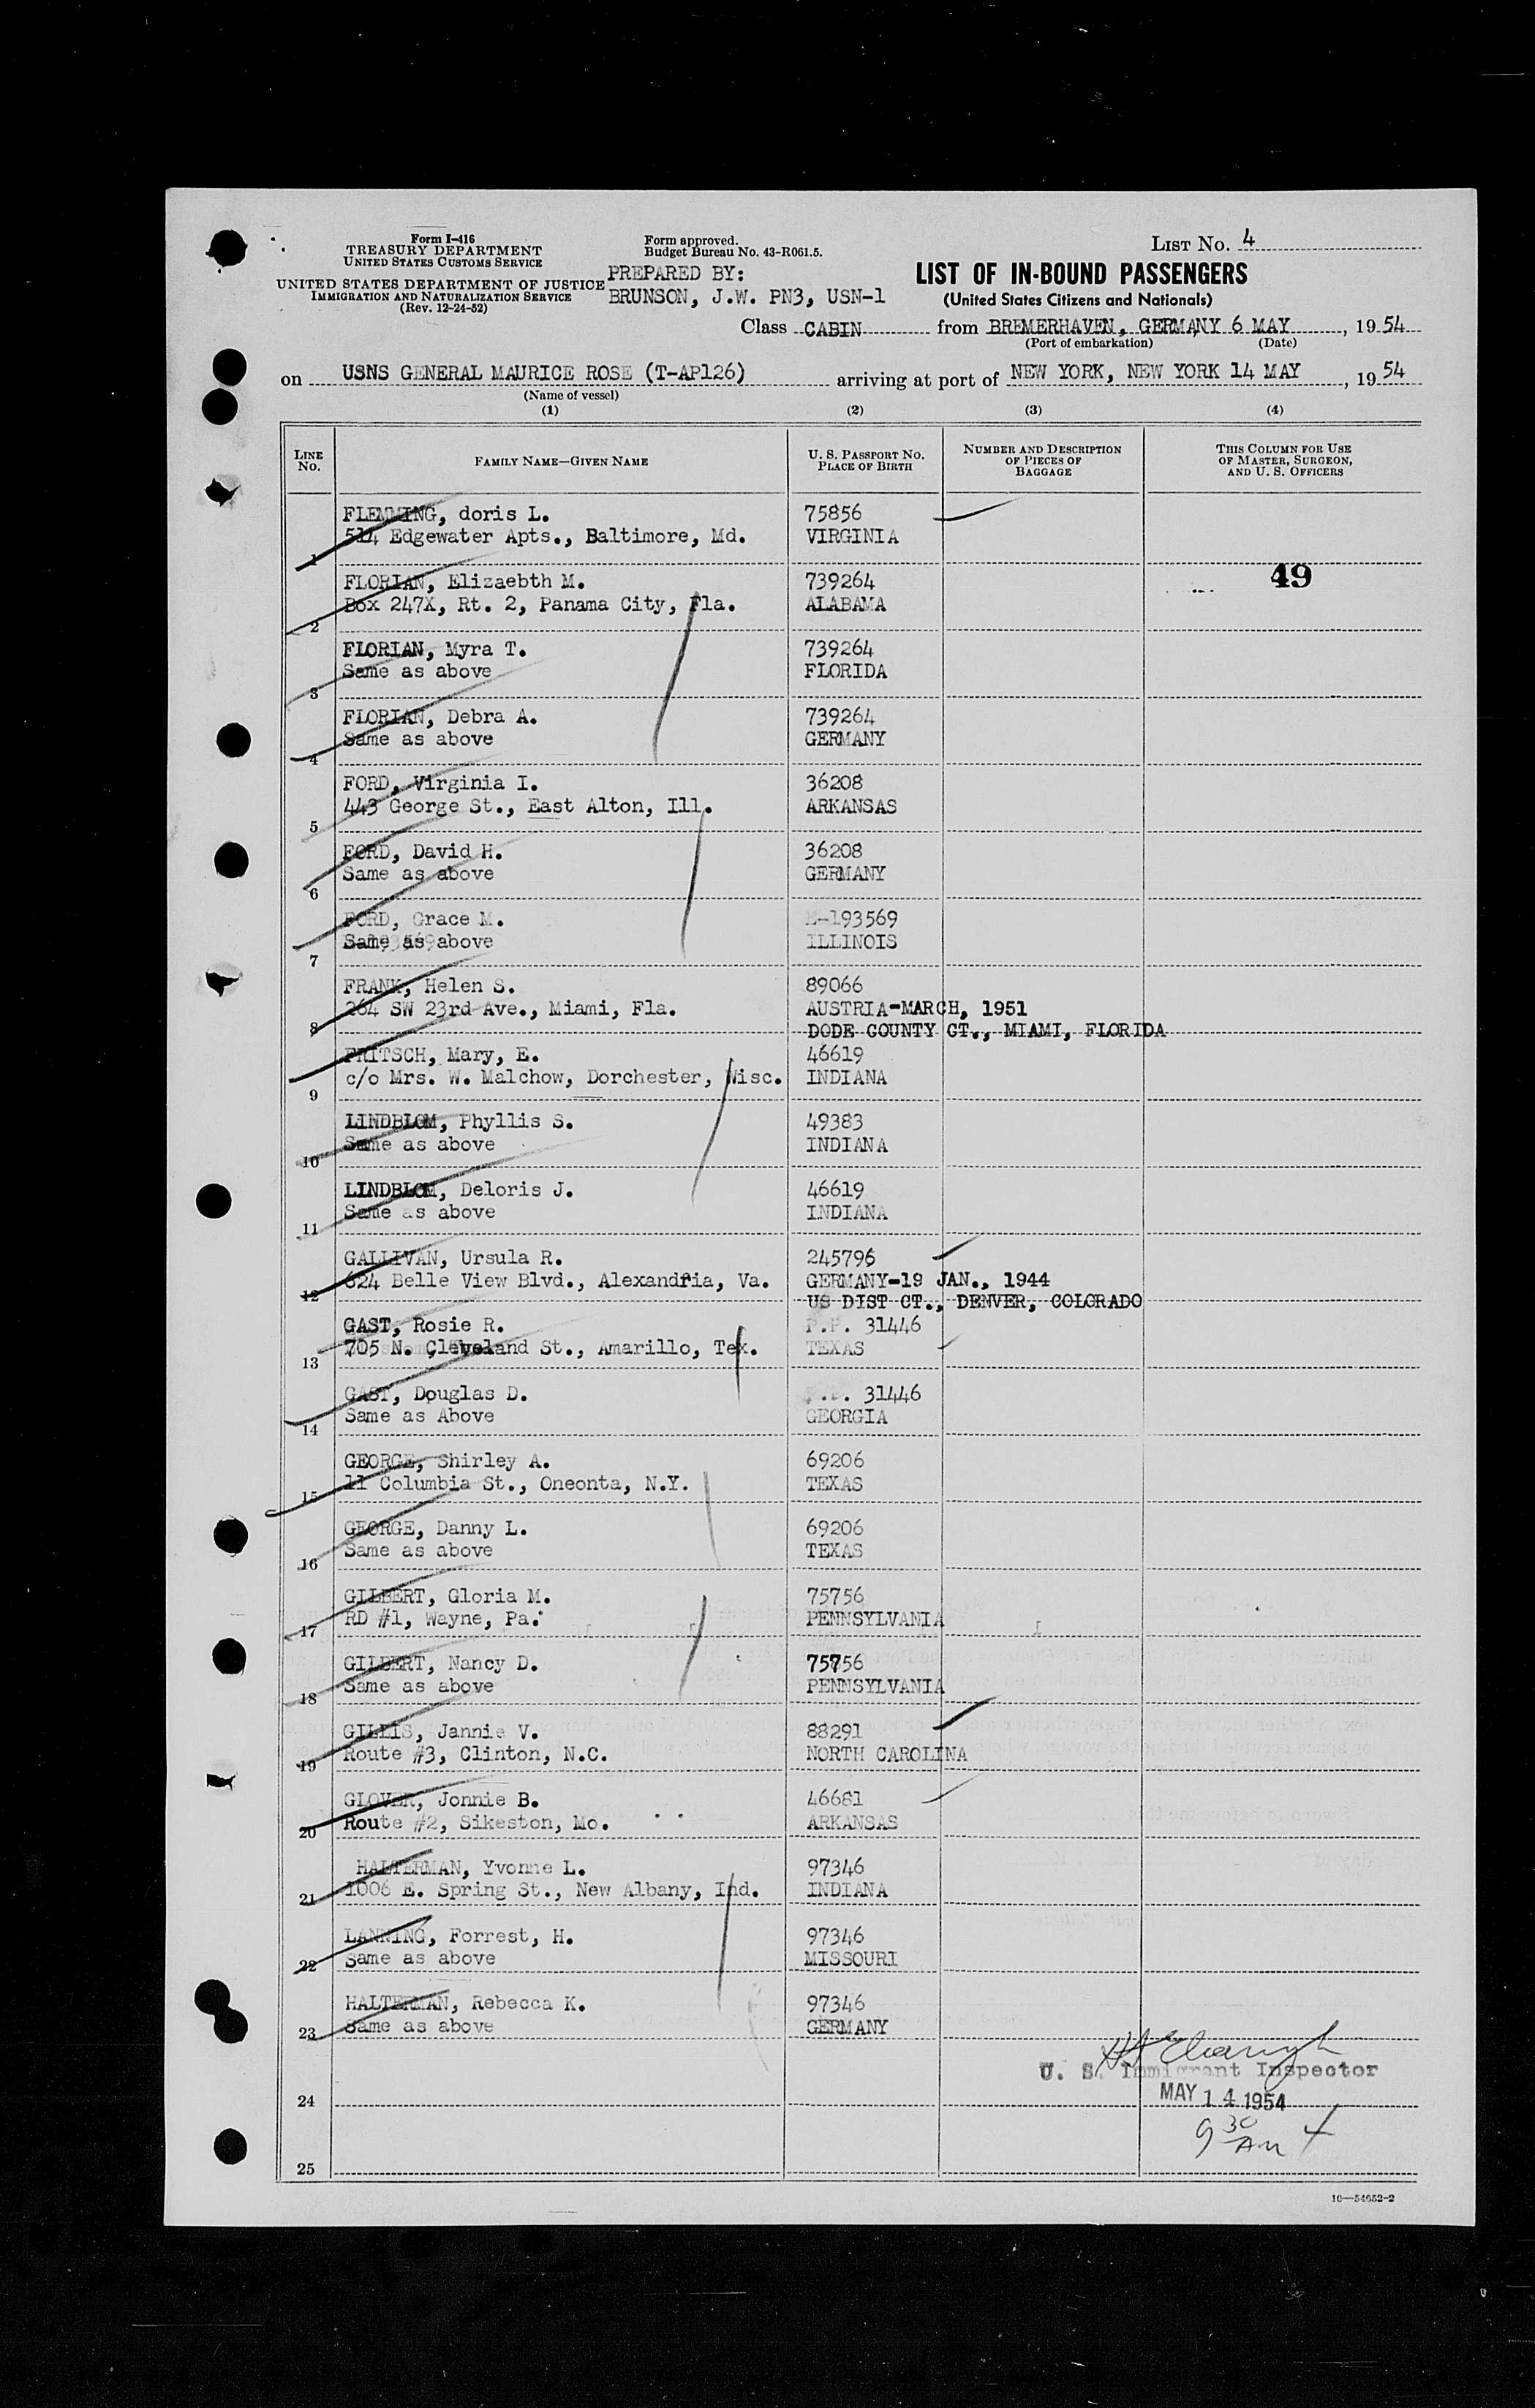 Form I-416
TREASURY DEPARTMENT
UNITED STATES CUSTOMS SERVICE
UNITED STATES DEPARTMENT OF JUSTICE
IMMIGRATION AND NATURALIZATION SERVICE
(Rev. 12-24-52)
Form approved.
Budget Bureau No. 43-R061.5.
PREPARED BY:
BRUNSON, J.W. PN3, USN-1
LIST NO. 4
LIST OF IN-BOUND PASSENGERS
(United States Citizens and Nationals)
Class CABIN from BREMERHAVEN, GERMANY 6 MAY, 1954
(Port of embarkation) (Date)
on USNS GENERAL MAURICE ROSE (T-AP126) arriving at port of NEW YORK, NEW YORK 14 MAY, 1954
(Name of vessel)
(1) (2) (3) (4)
LINE NO. FAMILY NAME—GIVEN NAME U. S. PASSPORT NO. PLACE OF BIRTH NUMBER AND DESCRIPTION OF PIECES OF BAGGAGE THIS COLUMN FOR USE OF MASTER, SURGEON, AND U. S. OFFICERS
FLEMMING, doris L. 75856
1 514 Edgewater Apts., Baltimore, Md. VIRGINIA
49
FLORIAN, Elizaebth M. 739264
2 Box 247X, Rt. 2, Panama City, Fla. ALABAMA
FLORIAN, Myra T. 739264
3 Same as above FLORIDA
FLORIAN, Debra A. 739264
4 Same as above GERMANY
FORD, Virginia I. 36208
5 443 George St., East Alton, Ill. ARKANSAS
FORD, David H. 36208
6 Same as above GERMANY
FORD, Grace M. -193569
7 Same as above ILLINOIS
FRANK, Helen S. 89066
8 264 SW 23rd Ave., Miami, Fla. AUSTRIA-MARCH, 1951
DODE COUNTY CT., MIAMI, FLORIDA
FRITSCH, Mary, E. 46619
9 c/o Mrs. W. Malchow, Dorchester, Wisc. INDIANA
LINDBLOM, Phyllis S. 49383
10 Same as above INDIANA
LINDBLOM, Deloris J. 46619
11 Same as above INDIANA
GALLIVAN, Ursula R. 245796
12 624 Belle View Blvd., Alexandria, Va. GERMANY-19 JAN., 1944
US DIST CT., DENVER, COLORADO
GAST, Rosie R. P.P. 31446
13 705 N. Cleveland St., Amarillo, Tex. TEXAS
GAST, Douglas D. 31446
14 Same as Above GEORGIA
GEORGE, Shirley A. 69206
15 11 Columbia St., Oneonta, N.Y. TEXAS
GEORGE, Danny L. 69206
16 Same as above TEXAS
GILBERT, Gloria M. 75756
17 RD #1, Wayne, Pa. PENNSYLVANIA
GILBERT, Nancy D. 75756
18 Same as above PENNSYLVANIA
GILLIS, Jannie V. 88291
19 Route #3, Clinton, N.C. NORTH CAROLINA
GLOVER, Jonnie B. 46681
20 Route #2, Sikeston, Mo. ARKANSAS
HALTERMAN, Yvonne L. 97346
21 1006 E. Spring St., New Albany, Ind. INDIANA
LANNING, Forrest, H. 97346
22 Same as above MISSOURI
HALTERMAN, Rebecca K. 97346
23 Same as above GERMANY
U. S. Immigrant Inspector
24 MAY 14 1954
9 30 AM
25
16—54652-2